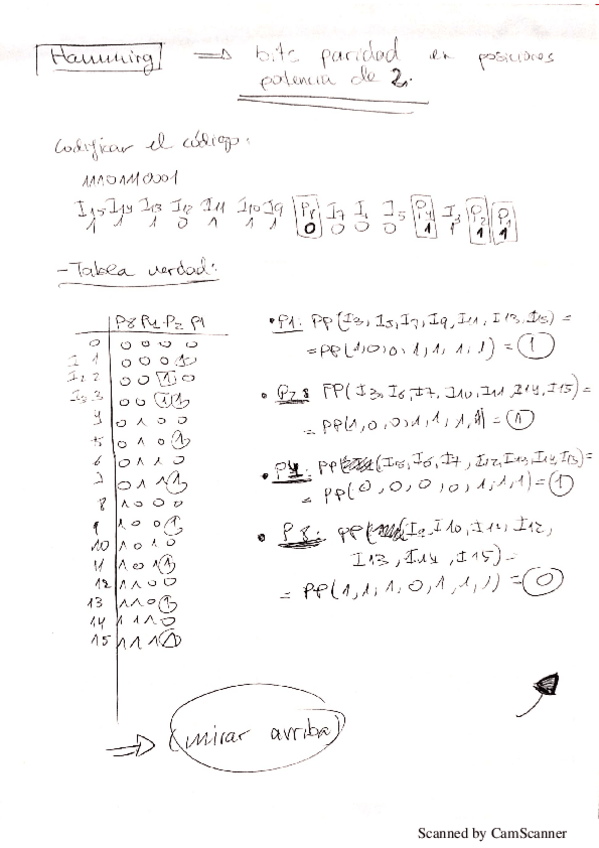 Hamming => bits paridad en posiciones
potencia de 2.
Codificar el código:
11101110001
I15 I14 I13 I12 I11 I10 I9 P8 I7 I6 I5 P4 I3 P2 P1
1 1 1 0 1 1 1 0 0 0 0 1 1 1 1
- Tabla verdad:
P8 P4 P2 P1
0 0 0 0 0
I 1 0 0 0 1
I2 2 0 0 1 0
I3 3 0 0 1 1
4 0 1 0 0
5 0 1 0 1
6 0 1 1 0
7 0 1 1 1
8 1 0 0 0
9 1 0 0 1
10 1 0 1 0
11 1 0 1 1
12 1 1 0 0
13 1 1 0 1
14 1 1 1 0
15 1 1 1 1
• P1: PP(I3, I5, I7, I9, I11, I13, I15) =
= PP(1,0,0,1,1,1,1) = 1
• P2: PP(I3, I6, I7, I10, I11, I14, I15) =
= PP(1,0,0,1,1,1,1) = 1
• P4: PP(I5, I6, I7, I12, I13, I14, I15) =
= PP(0,0,0,0,1,1,1) = 1
• P8: PP(I9, I10, I11, I12,
I13, I14, I15) =
= PP(1,1,1,0,1,1,1) = 0
=> (mirar arriba)
Scanned by CamScanner